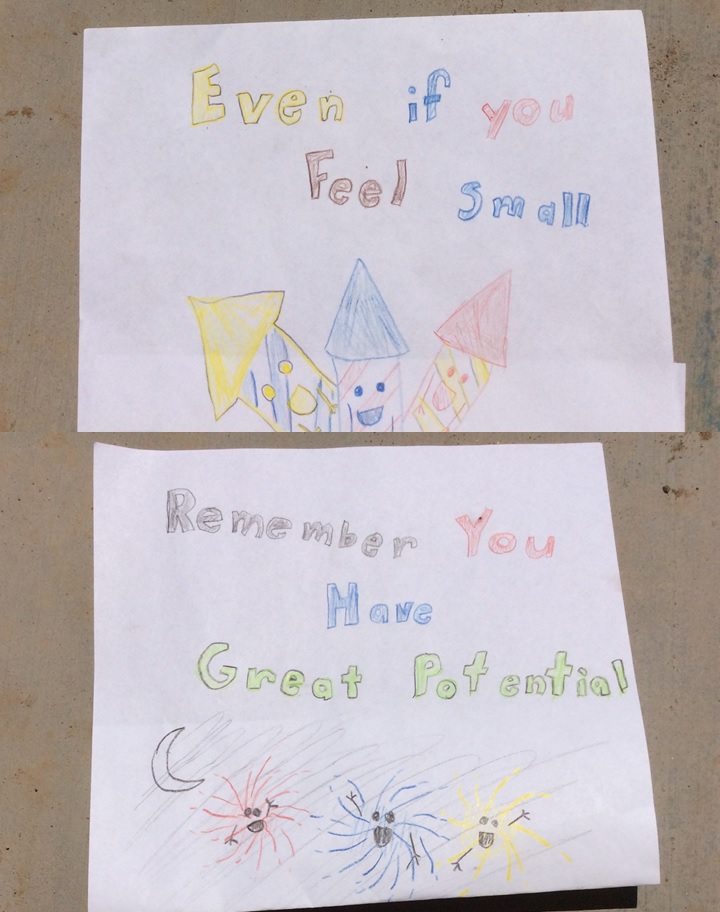 Even if you
Feel Small
Remember You
Have
Great Potential